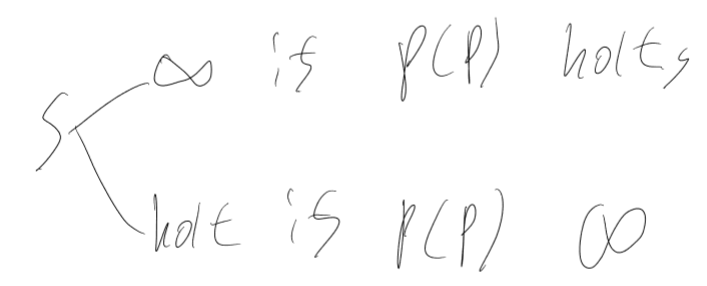 ∞ if P(P) holts
S
holt if P(P) ∞